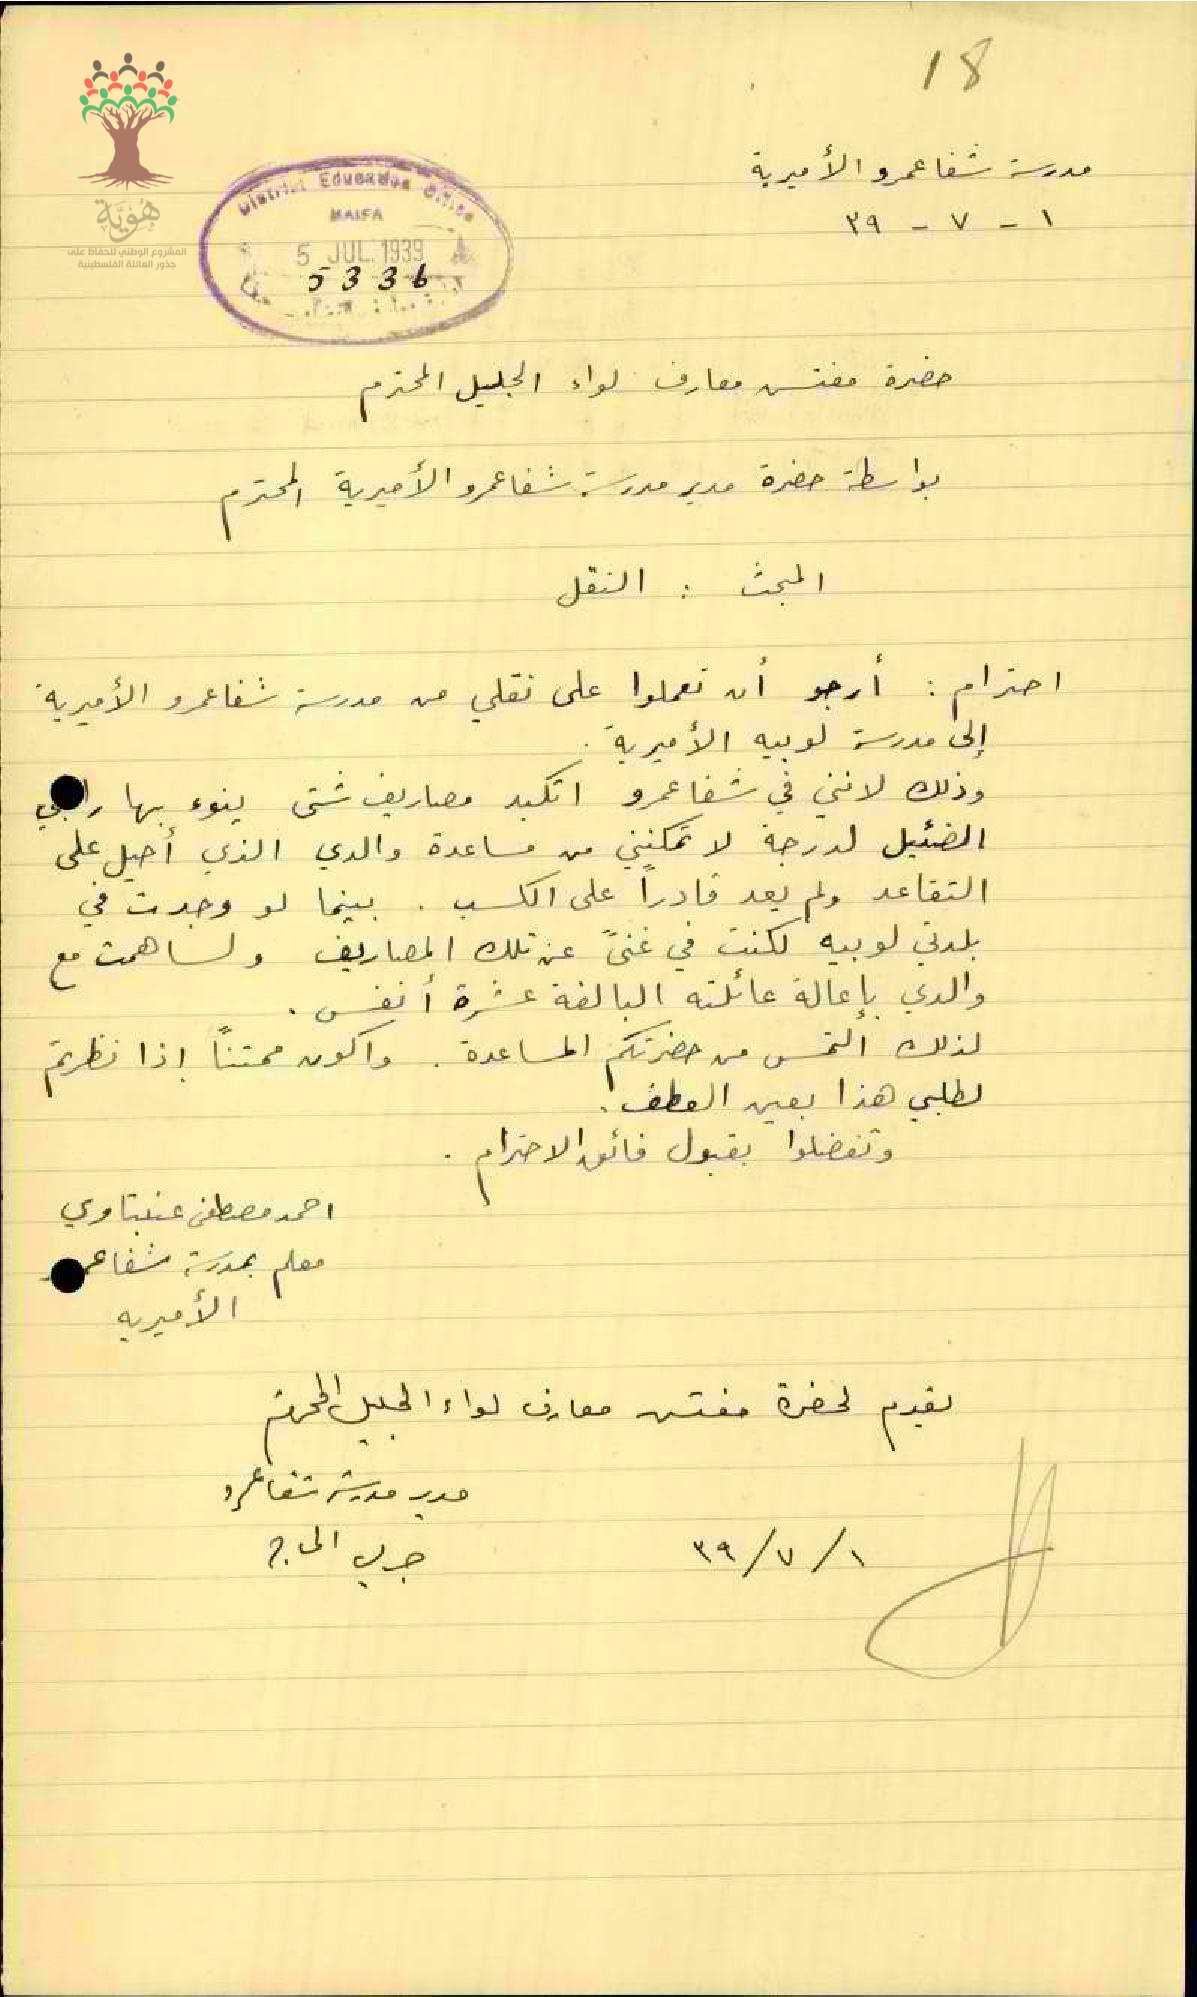 18
مدرسة شفاعمرو الأميرية
١ - ٧ - ٣٩
هُوِيَّة
المشروع الوطني للحفاظ على
جذور العائلة الفلسطينية
District Education Office
HAIFA
5 JUL. 1939
5336
حضرة مفتش معارف لواء الجليل المحترم
بواسطة حضرة مدير مدرسة شفاعمرو الأميرية المحترم
المبحث : النقل
احترام : أرجو أن تعملوا على نقلي من مدرسة شفاعمرو الأميرية
إلى مدرسة لوبيه الأميرية .
وذلك لانني في شفاعمرو اتكبد مصاريف شتى ينوء بها راتبي
الضئيل لدرجة لا تمكنني من مساعدة والدي الذي أحيل على
التقاعد ولم يعد قادراً على الكسب . بينما لو وجدت في
بلدتي لوبيه لكنت في غنىً عن تلك المصاريف ولساهمت مع
والدي بإعالة عائلته البالغة عشرة أنفس .
لذلك التمس من حضرتكم المساعدة . واكون ممتناً إذا نظرتم
لطلبي هذا بعين العطف .
وتفضلوا بقبول فائق الاحترام .
احمد مصطفى عنبتاوي
معلم بمدرسة شفاعمرو
الأميريه
يقدم لحضرة مفتش معارف لواء الجليل المحترم
مدير مدرسة شفاعمرو
١/٧/٣٩